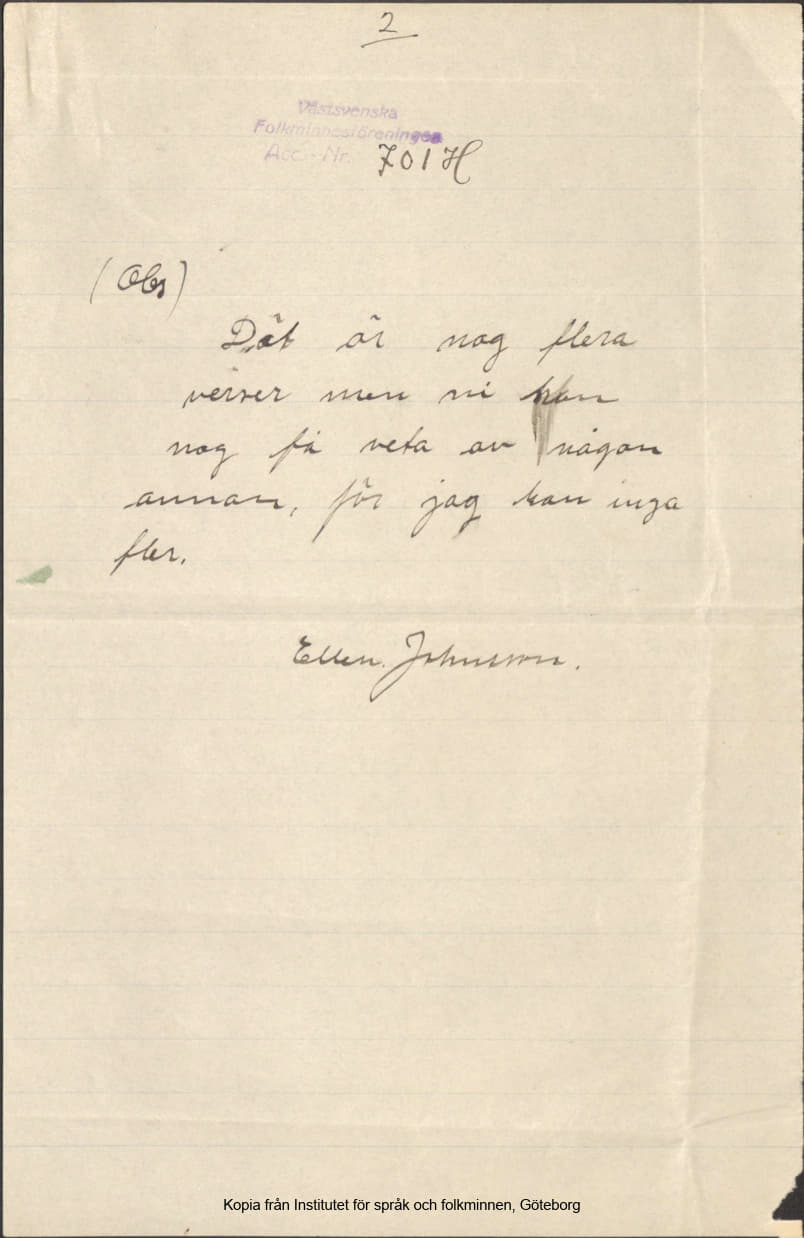 2
Västsvenska
Folkminnesföreningen
Acc.-Nr. 701 H
(Obs)
Dät är nog flera
verser men ni kan
nog få veta av någon
annan, för jag kan inga
fler.
Ellen. Johnsson.
Kopia från Institutet för språk och folkminnen, Göteborg